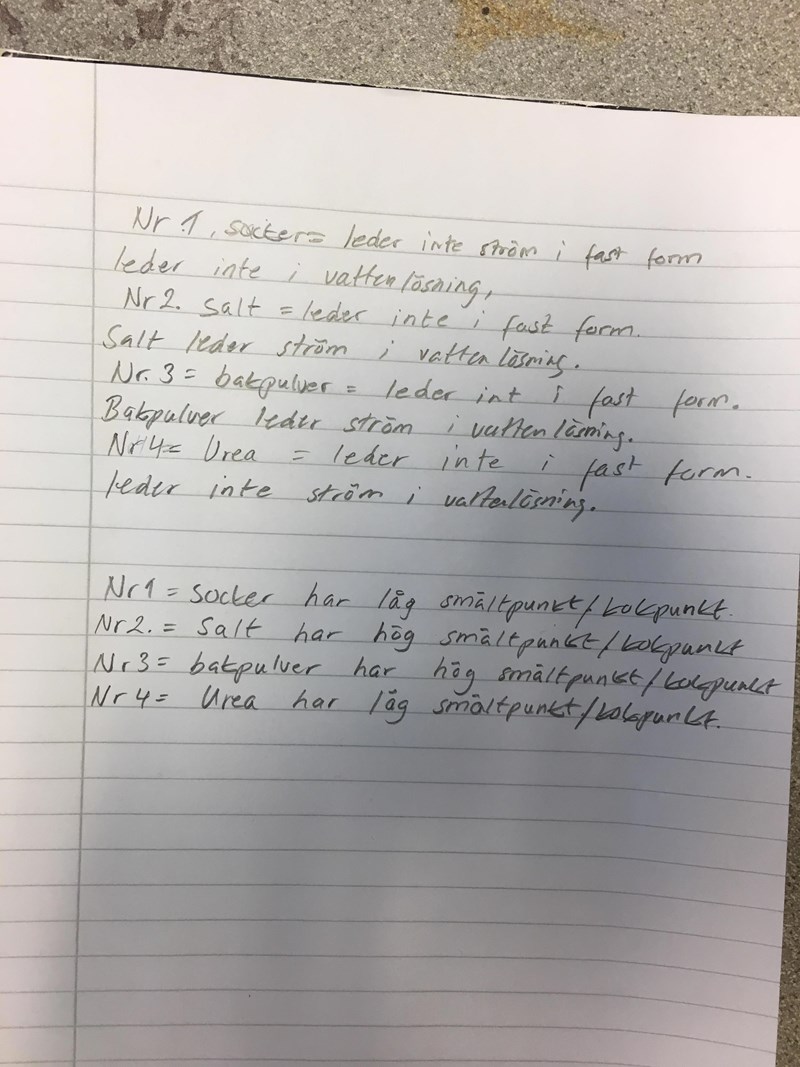 Nr 1, socker= leder inte ström i fast form
leder inte i vattenlösning,
Nr 2. Salt = leder inte i fast form.
Salt leder ström i vatten lösning.
Nr. 3 = bakpulver = leder int i fast form.
Bakpulver leder ström i vatten lösning.
Nr 4= Urea = leder inte i fast form.
leder inte ström i vattenlösning.
Nr 1 = Socker har låg smältpunkt/kokpunkt.
Nr 2. = Salt har hög smältpunkt/kokpunkt
Nr 3= bakpulver har hög smältpunkt/kokpunkt
Nr 4= Urea har låg smältpunkt/kokpunkt.